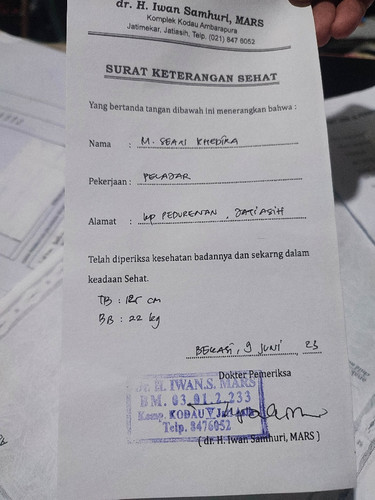 dr. H. Iwan Samhuri, MARS
Komplek Kodau Ambarapura
Jatimekar, Jatiasih, Telp. (021) 847 6052
SURAT KETERANGAN SEHAT
Yang bertanda tangan dibawah ini menerangkan bahwa :
Nama : M. SEAN KHEDIRA
Pekerjaan : PELAJAR
Alamat : KP PEDURENAN , JATIASIH
Telah diperiksa kesehatan badannya dan sekarng dalam
keadaan Sehat.
TB : 125 cm
BB : 22 kg
BEKASI, 9 JUNI 23
Dokter Pemeriksa
Dr. H. IWAN.S. MARS
BM. 03.01.2.233
Komp. KODAU V
Telp. 8476052
( dr. H. Iwan Samhuri, MARS )